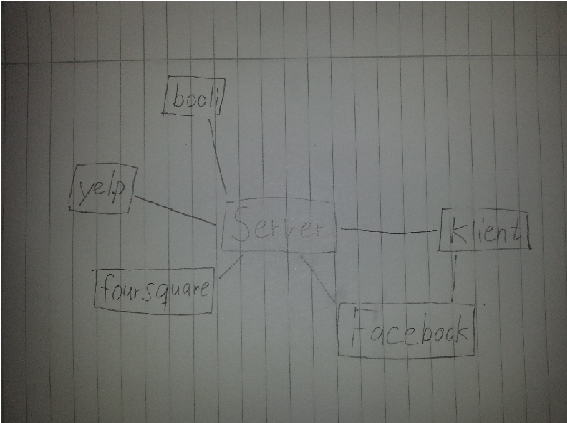 booli
yelp
Server
Klient
foursquare
Facebook